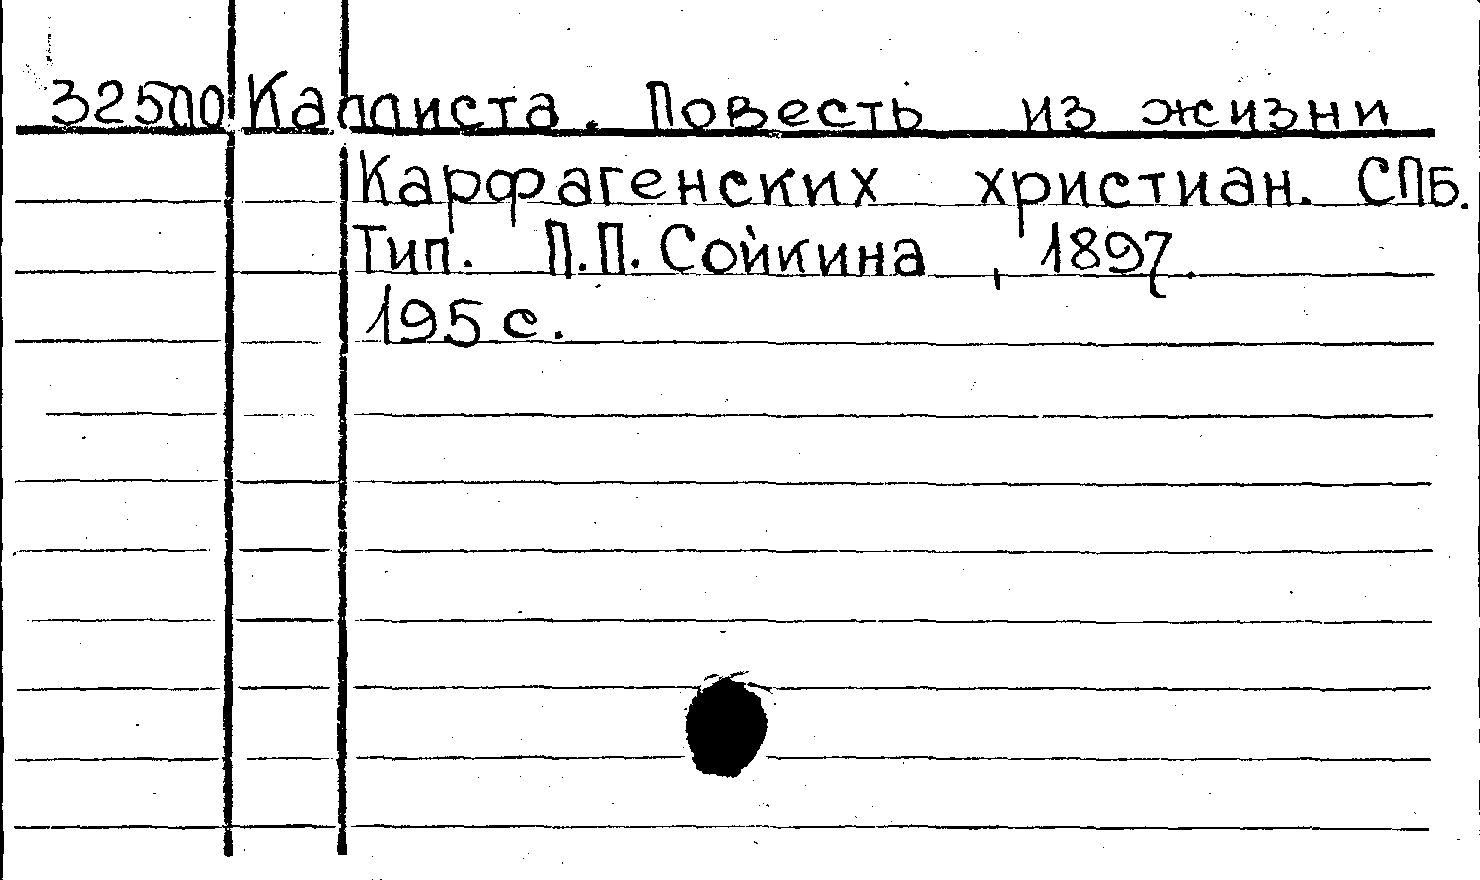 32500 Каллиста. Повесть из жизни
Карфагенских христиан. СПб.
Тип. П.П. Сойкина, 1897.
195 с.